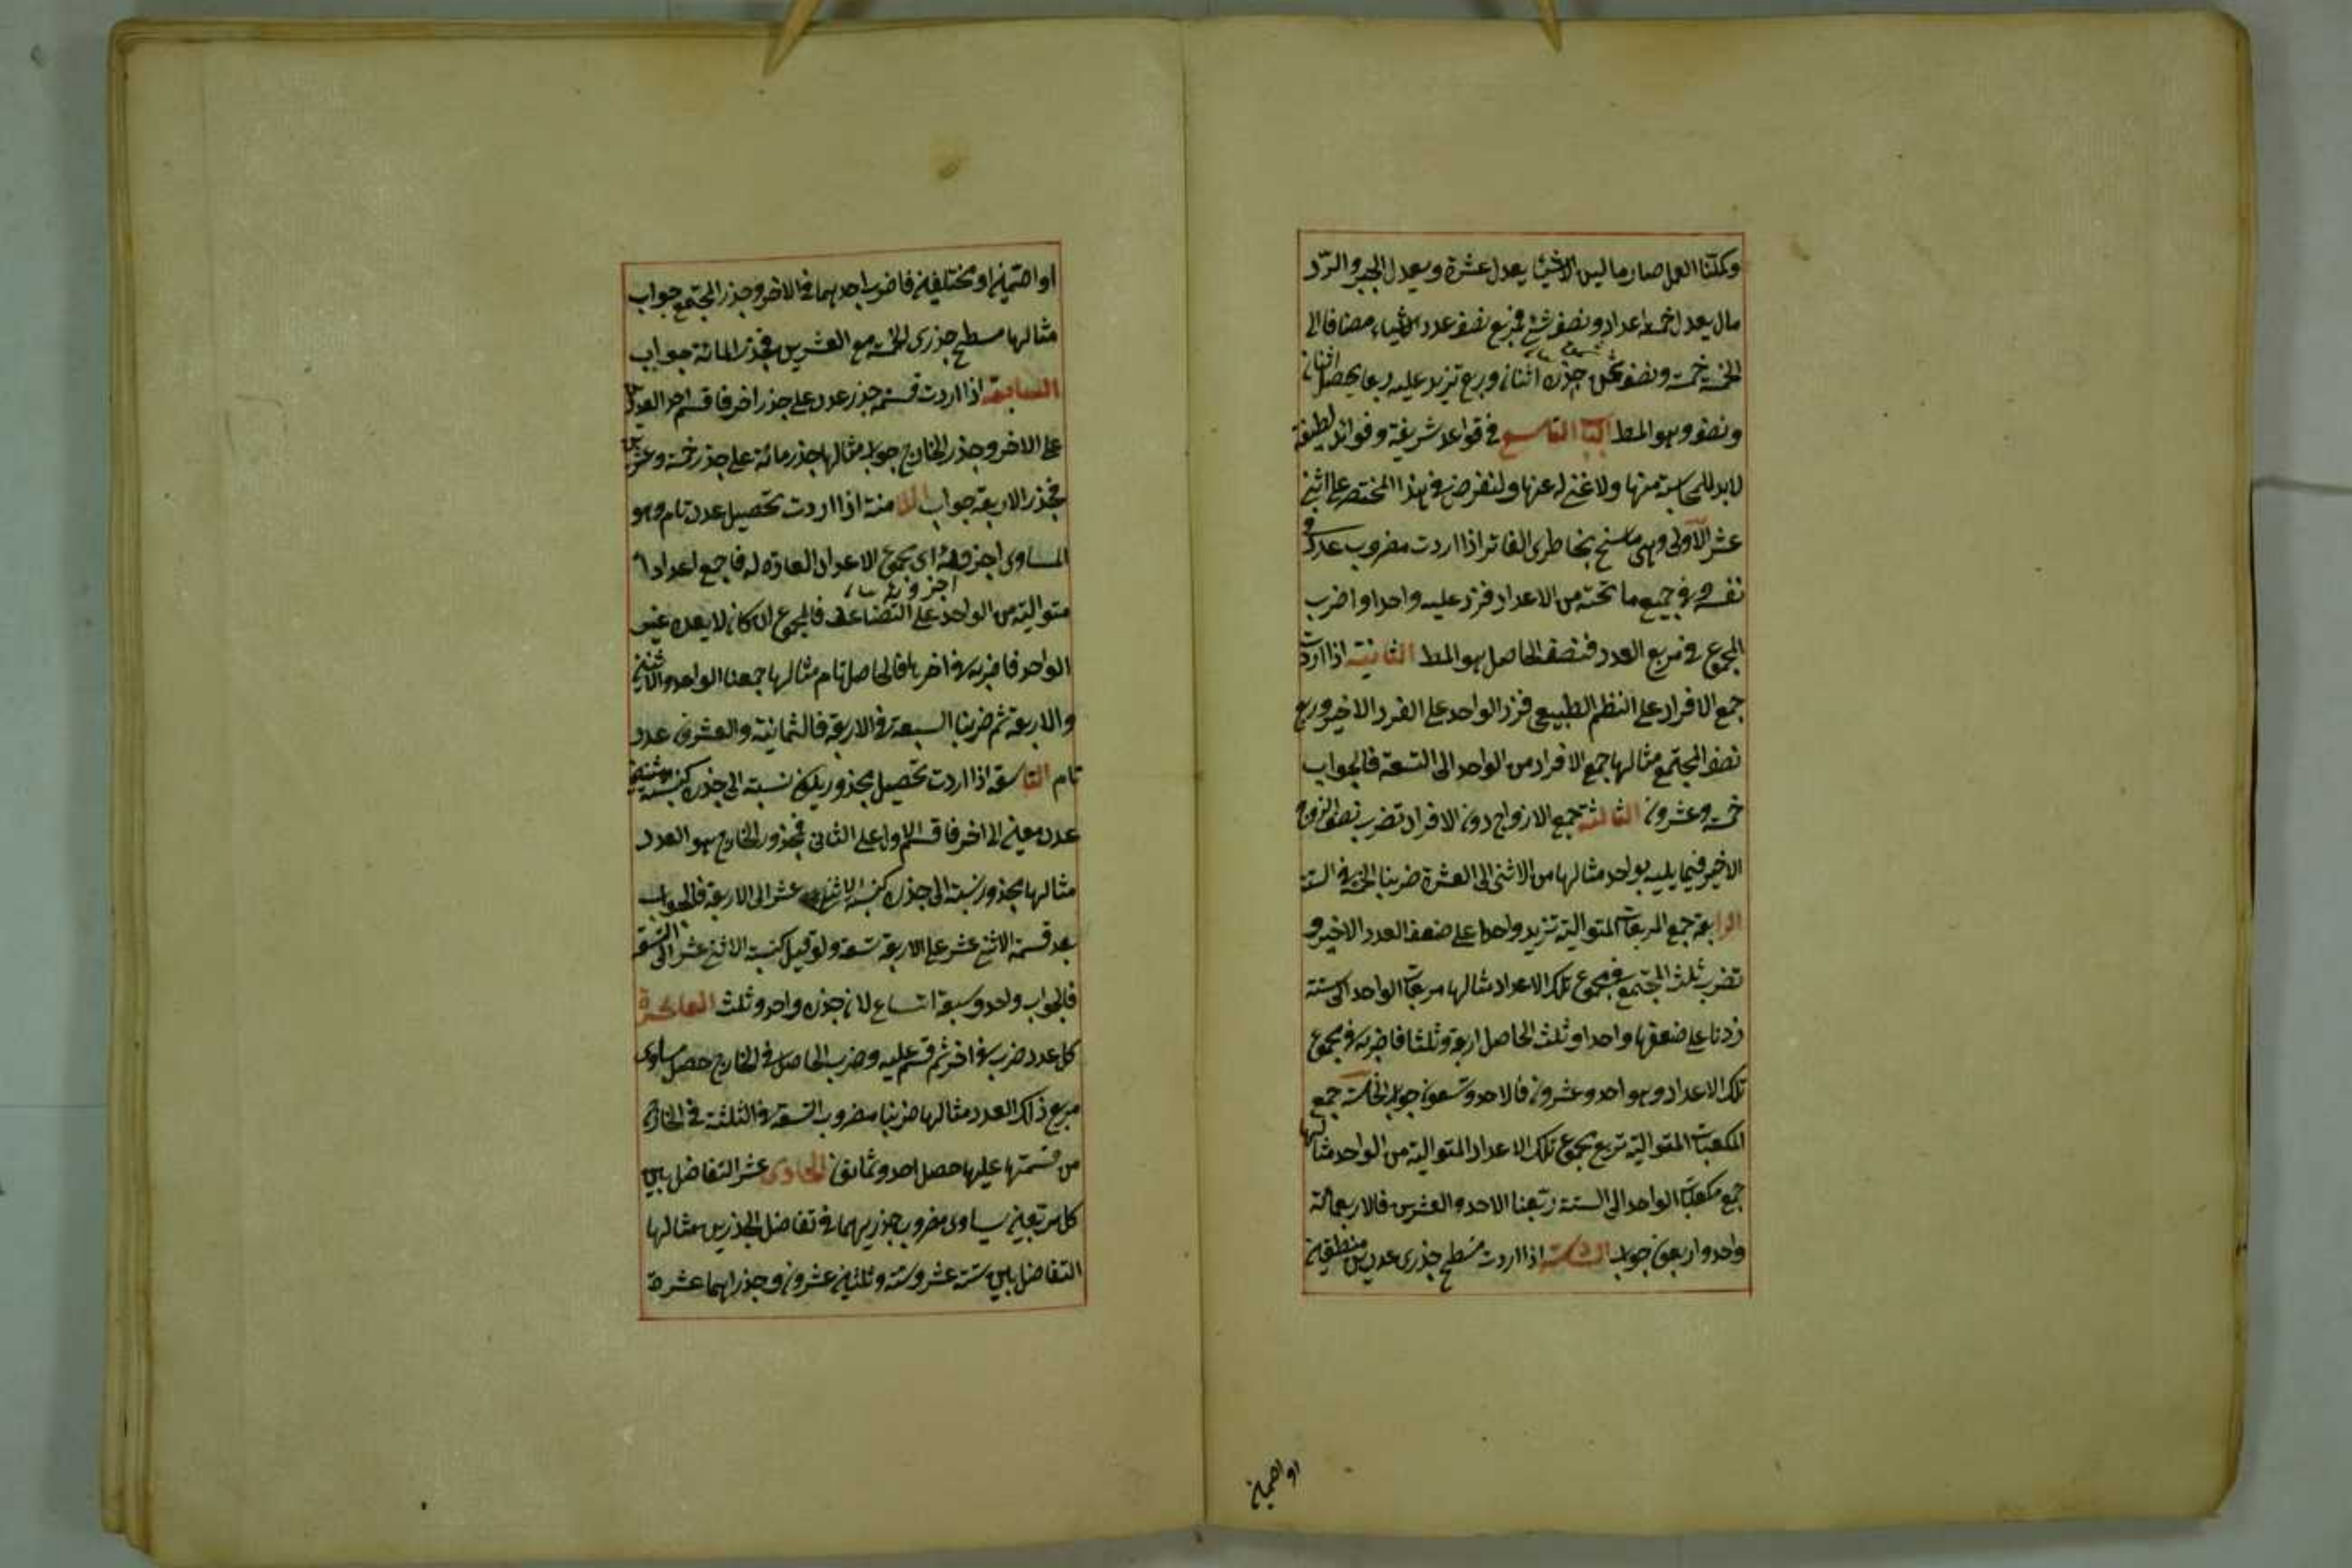 وكملنا العمل صار مال ليس الا شيئا يعدل عشرة ويعدل الجبر والرد
مال يعدل خمسة اعداد ونصف شئ فربع نصف عدد الاشياء مضافا الى
الخمسة خمسة ونصف ثمن جذره اثنان وربع تزيد عليه ربعا يحصل اثنان
ونصف وهو المط الباب التاسع في قواعد شريفة وفوائد لطيفة
لابد للمحاسب منها ولا غنى له عنها ولنقرض في هذا المختصر على اثنى
عشر الاولى وهي ما سنح بخاطرى الفاتر اذا اردت مضروب عدد في
نفسه وفي جميع ما تحته من الاعداد فزد عليه واحدا واضرب
المجموع في مربع العدد فنصف الحاصل هو المط الثانية اذا اردت
جمع الافراد على النظم الطبيعي فزد الواحد على الفرد الاخير وربع
نصف المجتمع مثالها جمع الافراد من الواحد الى التسعة فالجواب
خمسة وعشرون الثالثة جمع الازواج دون الافراد تضرب نصف الزوج
الاخير فيما يليه بواحد مثالها من الاثنى الى العشرة ضربنا الخمسة في الستة
الرابعة جمع المربعات المتوالية تزيد واحدا على ضعف العدد الاخير و
تضرب ثلث المجتمع في مجموع تلك الاعداد مثالها مربعات الواحد الى ستة
زدنا على ضعفها واحدا وثلث الحاصل اربعة وثلثا فاضربه في مجموع
تلك الاعداد وهو احد وعشرون فالاحد وتسعون جواب الخامسة جمع
المكعبات المتوالية تربع مجموع تلك الاعداد المتوالية من الواحد مثالها
جمع مكعبات الواحد الى الستة ربعنا الاحد والعشرين فالاربعمائة
واحد واربعون جواب السادسة اذا اردت مسطح جذرى عددين منطقين
او اصمين
او اصمين او مختلفين فاضرب احدهما في الاخر وجذر المجتمع جواب
مثالها مسطح جذرى الخمسة مع العشرين فجذر المائة جواب
السابعة اذا اردت قسمة جذر عدد على جذر اخر فاقسم احد العددين
على الاخر وجذر الخارج جواب مثالها جذر مائة على جذر خمسة وعشرين
فجذر الاربعة جواب الثامنة اذا اردت تحصيل عدد تام وهو
المساوى اجزاؤه اى مجموع الاعداد العادة له فاجمع اعدادا
اجزاؤه
متوالية من الواحد على التضاعف فالمجموع ان كان لا يعده غير
الواحد فاضربه في اخرها فالحاصل تام مثالها جمعنا الواحد والاثنين
والاربعة ثم ضربنا السبعة في الاربعة فالثمانية والعشرون عدد
تام التاسعة اذا اردت تحصيل مجذور يكون نسبته الى جذره كنسبة
عدد معين الى اخر فاقسم الاول على الثاني فمجذور الخارج هو العدد
مثالها مجذور نسبته الى جذره كنسبة الاثنى عشر الى الاربعة فالجواب
بعد قسمة الاثنى عشر على الاربعة تسعة ولو قيل كنسبة الاثنى عشر الى التسعة
فالجواب واحد وسبعة اتساع لان جذره واحد وثلث العاشرة
كل عدد ضرب في اخر ثم قسم عليه وضرب الحاصل في الخارج حصل مساوى
مربع ذلك العدد مثالها ضربنا مضروب التسعة في الثلثة في الخارج
من قسمتها عليها حصل احد وثمانون الحادى عشر التفاضل بين
كل مربعين يساوى مضروب جذريهما في تفاضل الجذرين مثالها
التفاضل بين ستة عشر وستة وثلثين عشرون وجذراهما عشرة